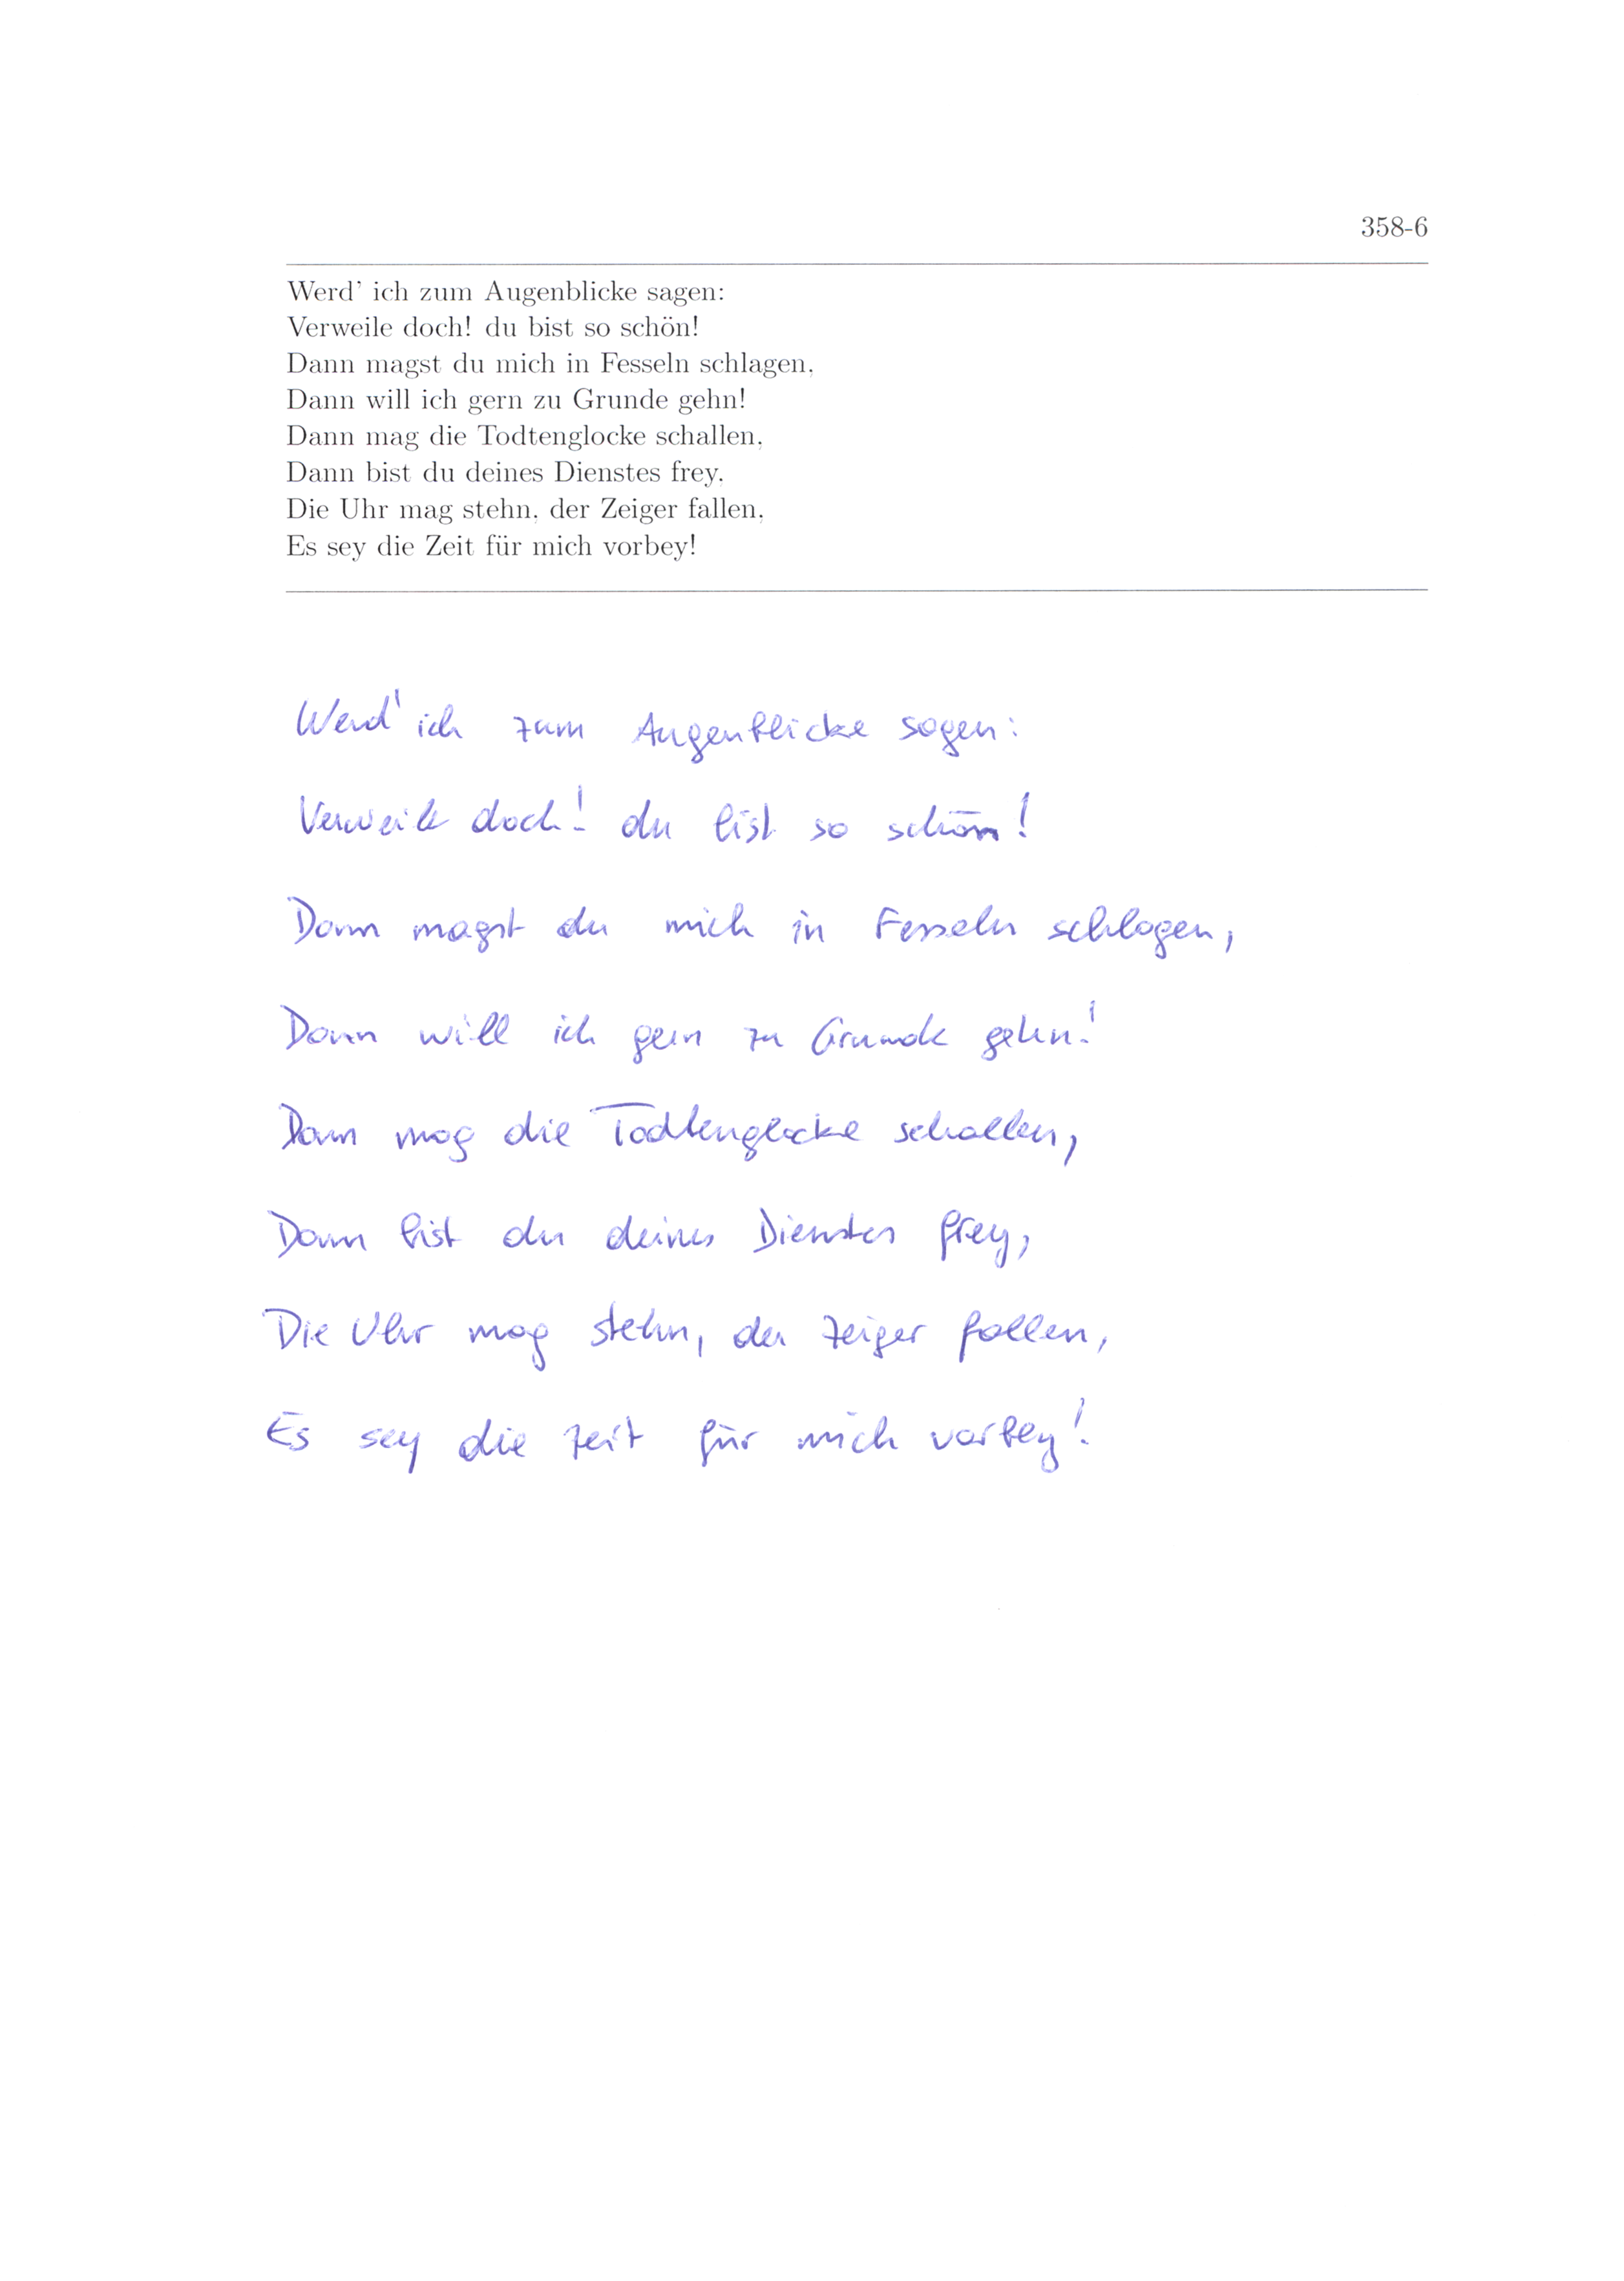 358-6
Werd' ich zum Augenblicke sagen:
Verweile doch! du bist so schön!
Dann magst du mich in Fesseln schlagen,
Dann will ich gern zu Grunde gehn!
Dann mag die Todtenglocke schallen,
Dann bist du deines Dienstes frey,
Die Uhr mag stehn, der Zeiger fallen,
Es sey die Zeit für mich vorbey!
Werd' ich zum Augenblicke sagen:
Verweile doch! du bist so schön!
Dann magst du mich in Fesseln schlagen,
Dann will ich gern zu Grunde gehn!
Dann mag die Todtenglocke schallen,
Dann bist du deines Dienstes frey,
Die Uhr mag stehn, der Zeiger fallen,
Es sey die Zeit für mich vorbey!